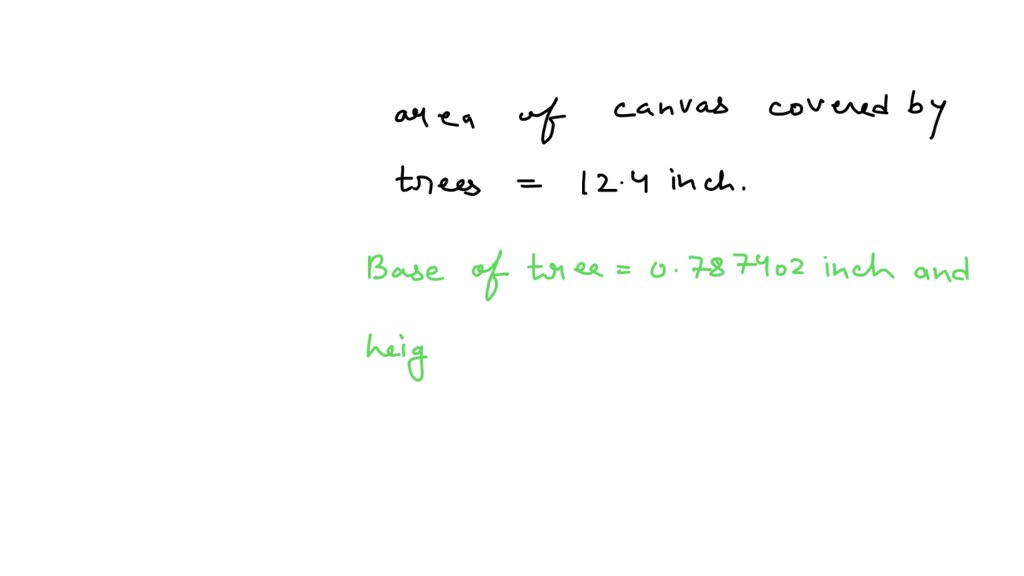 area of canvas covered by
trees = 12.4 inch.
Base of tree = 0.787402 inch and
heig